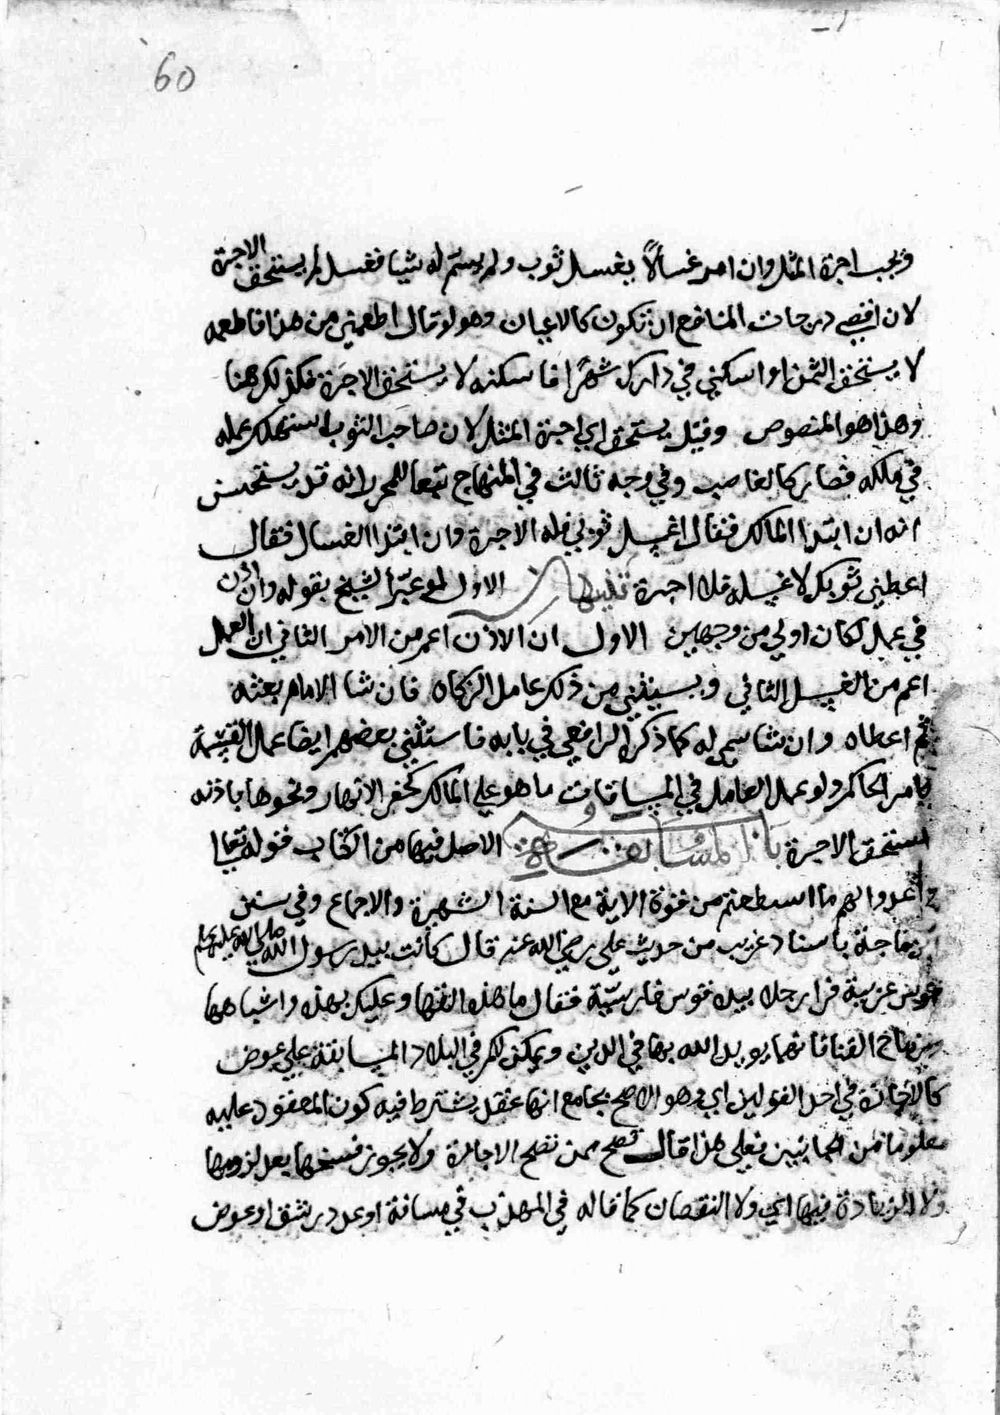 60
ويجب اجرة المثل وان امر غسالاً يغسل ثوب ولم يسم له شيا فغسل لم يستحق الاجرة
لان اقصى درجات المنافع ان تكون كالاعيان وهو لو قال اطعمني من هذا فاطعمه
لا يستحق الثمن او اسكني في دارك شهرا فاسكنه لا يستحق الاجرة فكذلك هنا
وهذا هو المنصوص وقيل يستحق اي اجرة المثل لان صاحب الثوب استهلك عمله
في ملكه فصار كالغاصب وفي وجه ثالث في المنهاج تبعا للمحرر انه قد يستحسن
انه ان ابتدا المالك فقال اغسل ثوبي فله الاجرة وان ابتدا الغسال فقال
اعطني ثوبك لاغسله فلا اجرة تنبيهان الاول لو عبر الشيخ بقوله وان اذن
في عمل لكان اولى من وجهين الاول ان الاذن اعم من الامر الثاني ان العمل
اعم من الغسل الثاني ويستثنى من ذلك عامل الزكاه فان شا الامام بعثه
ثم اعطاه وان شا سمى له كما ذكره الرافعي في بابه فاستثنى بعضهم ايضا عمل القسمة
بامر الحاكم ولو عمل العامل في المساقات ما هو على المالك كحفر الانهار ونحوها باذنه
استحق الاجرة باب المسابقة الاصل فيها من الكتاب قوله تعالى
واعدوا لهم ما استطعتم من قوة الاية مع السنة الشهيرة والاجماع وفي سنن
ابن ماجة باسناد غريب من حديث علي رضي الله عنه قال كانت بيد رسول الله صلى الله عليه وسلم
قوس عربية فرا رجلا بيده قوس فارسية فقال ما هذه القها وعليك بهذه واشباهها
ورماح القنا فانهما يويد الله بها في الدين ويمكن لكم في البلاد المسابقة على عوض
كالاجارة في احد القولين اي وهو الاصح بجامع انها عقد يشترط فيه كون المعقود عليه
معلوما من الجانبين فعلى هذا قال تصح ممن تصح الاجارة ولا يجوز فسخها بعد لزومها
ولا الزيادة فيها اي ولا النقصان كما قاله في المهذب في مسافة او عدد رشق او عوض